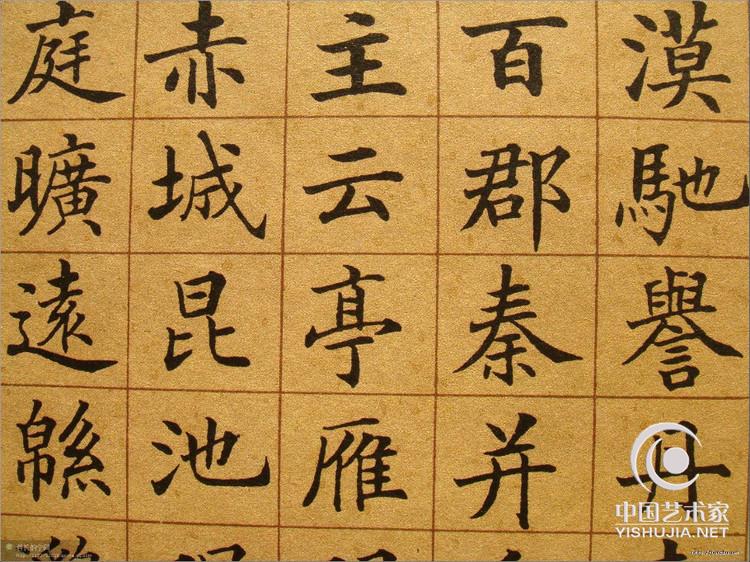 漠馳譽丹
百郡秦并
主云亭雁
赤城昆池
庭曠遠緜
中国艺术家
YISHUJIA.NET